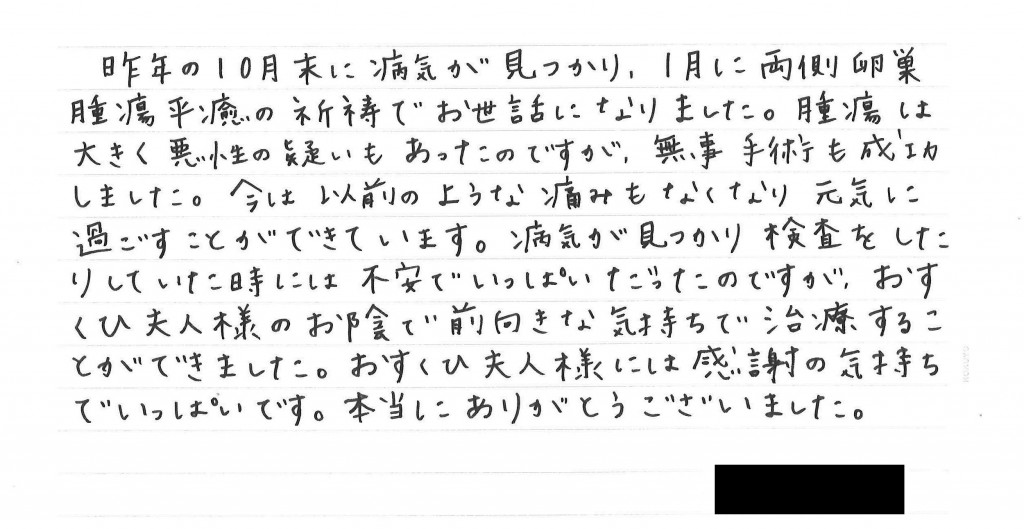 昨年の10月末に病気が見つかり、1月に両側卵巣
腫瘍平癒の祈祷でお世話になりました。腫瘍は
大きく悪性の疑いもあったのですが、無事手術も成功
しました。今は以前のような痛みもなくなり元気に
過ごすことができています。病気が見つかり検査をした
りしていた時には不安でいっぱいだったのですが、おす
くひ夫人様のお陰で前向きな気持ちで治療するこ
とができました。おすくひ夫人様には感謝の気持ち
でいっぱいです。本当にありがとうございました。